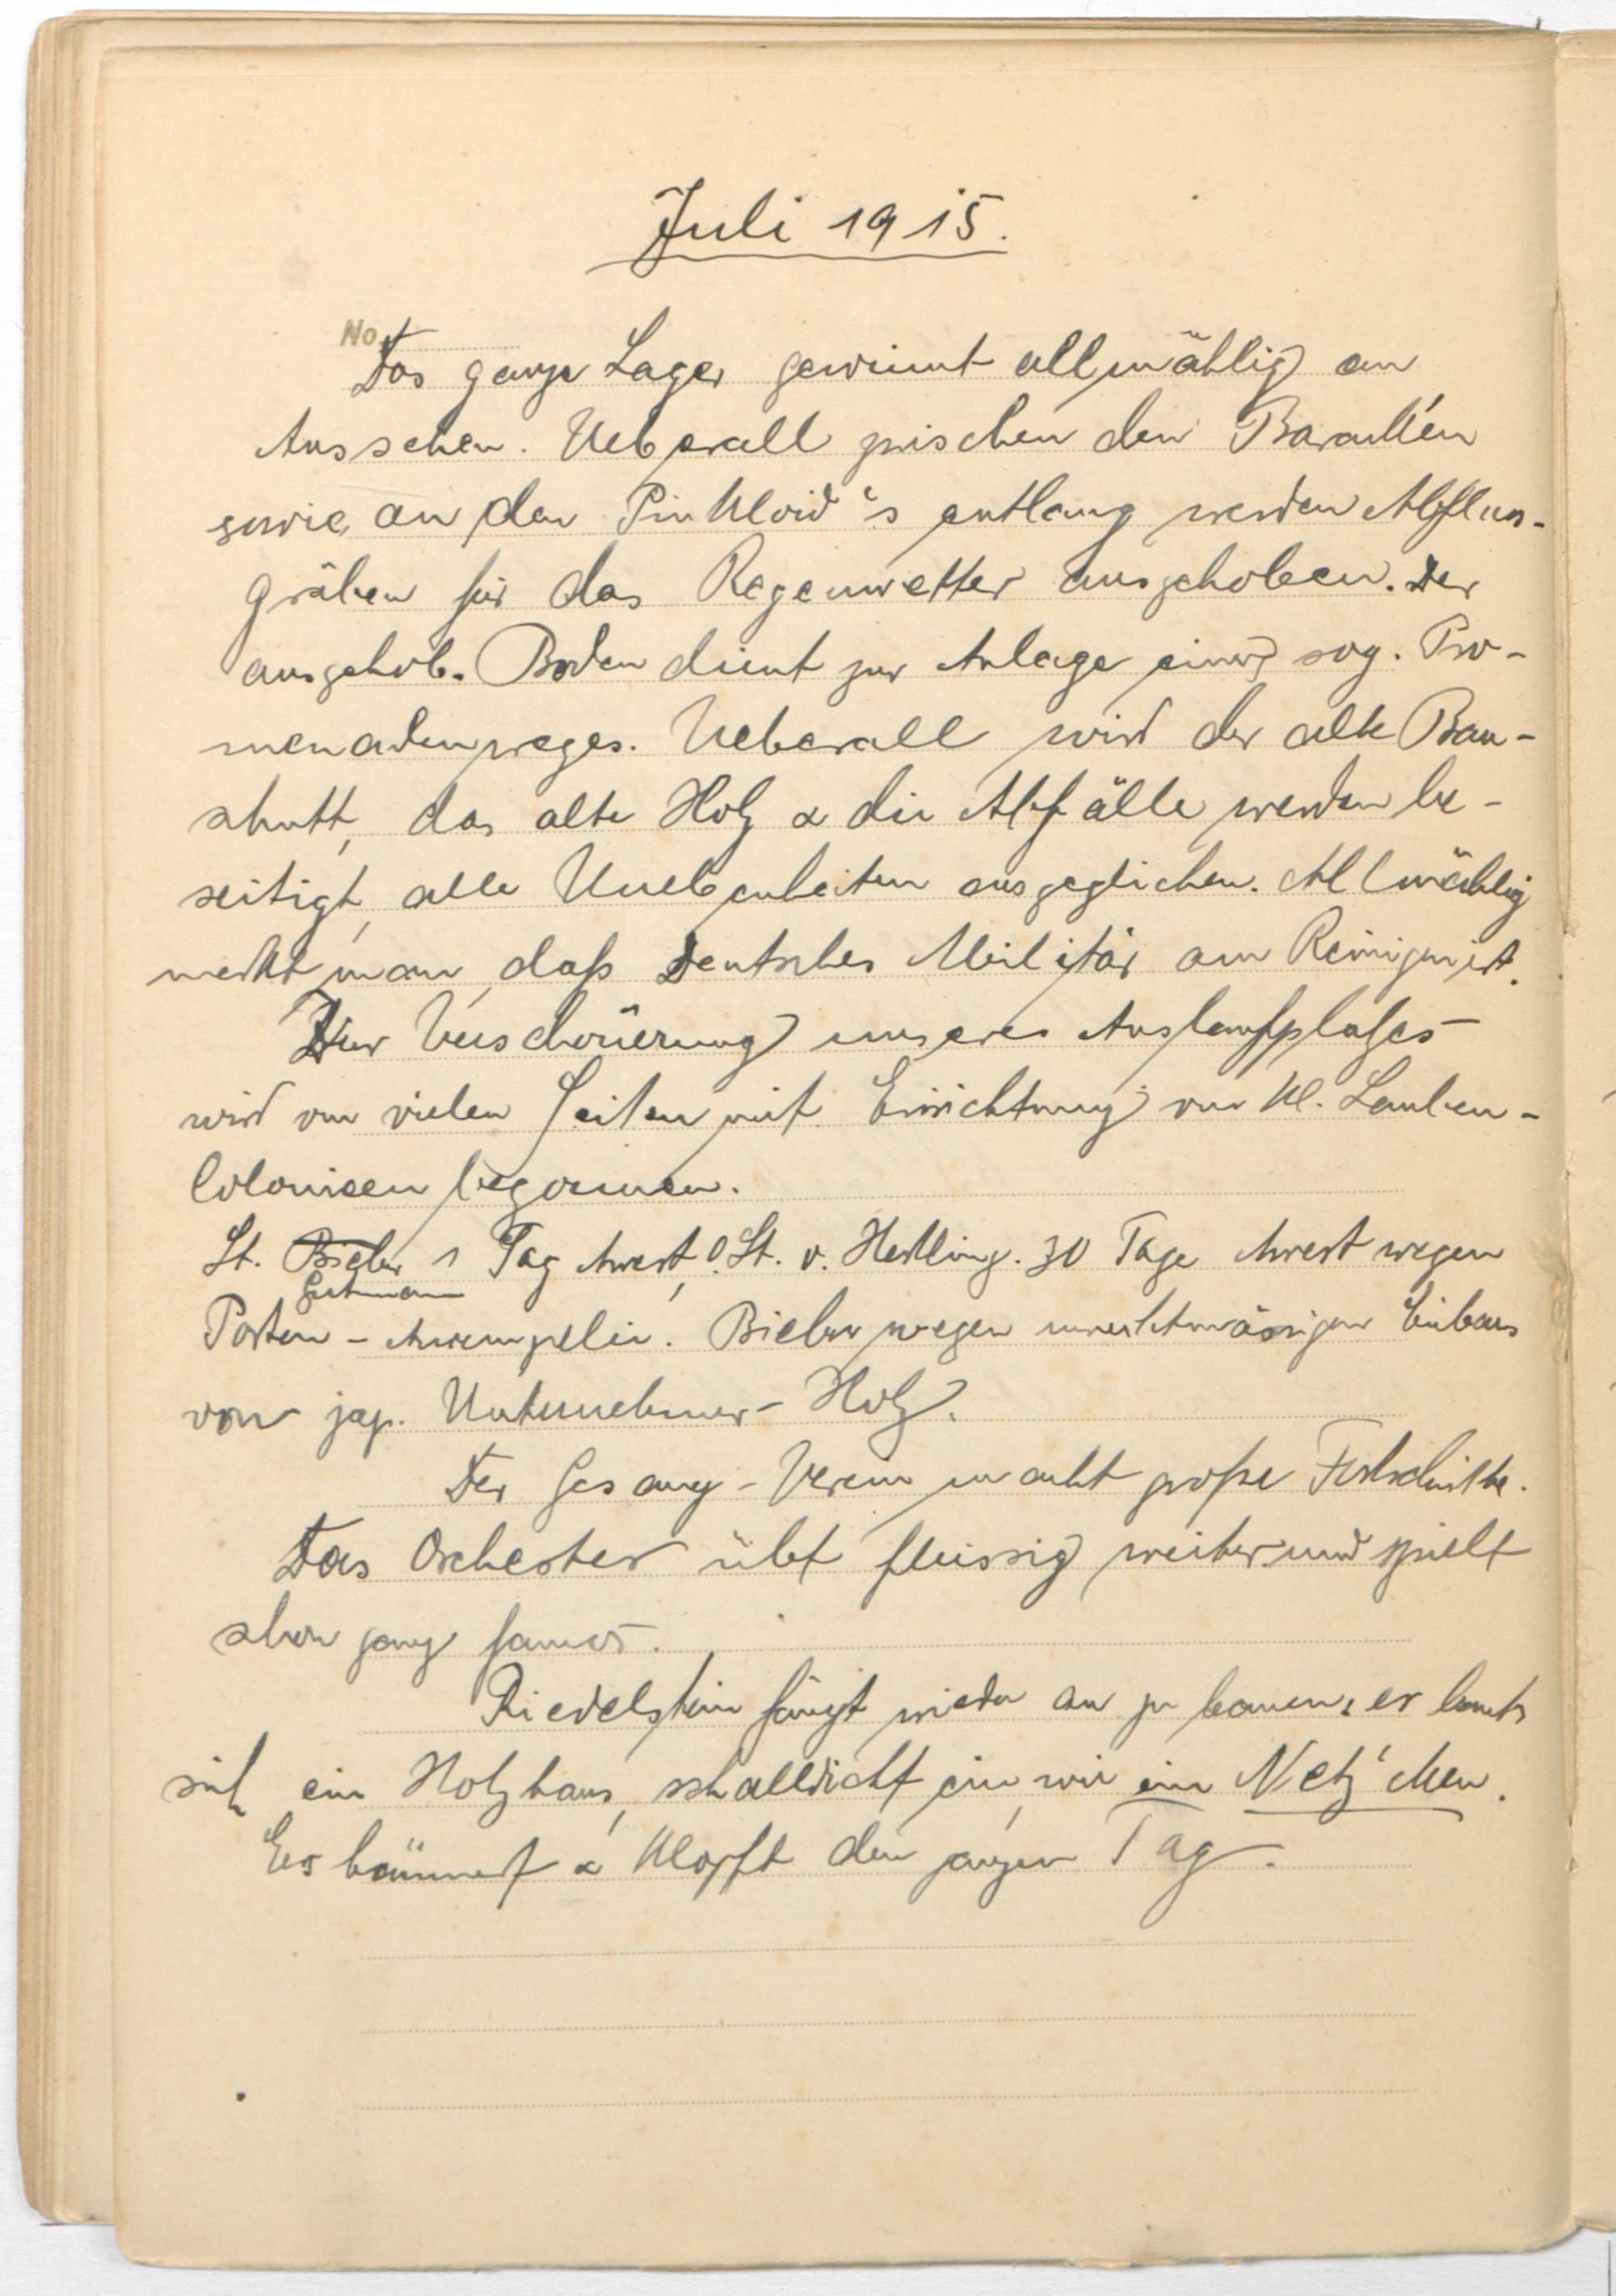 Juli 1915.
No.
Das ganze Lager gewinnt allmählig an
Aussehen. Ueberall zwischen den Baracken
sowie an den Pinkloid's entlang werden Abfluss-
gräben für das Regenwetter ausgehoben. Der
ausgehob. Boden dient zur Anlage eines sog. Pro-
menadenweges. Ueberall wird der alte Bau-
schutt, das alte Holz & die Abfälle werden be-
seitigt, alle Unebenheiten ausgeglichen. Allmählig
merkt man, daß Deutsches Militär am Reinigen ist.
Zur Verschönerung unseres Auslaufplatzes
wird von vielen Seiten mit Errichtung von kl. Lauben-
Colonieen begonnen.
Lt. Bieber 1 Tag Arrest, O.Lt. v. Hertling. 30 Tage Arrest wegen
Posten-Anrempelei. Bieber wegen unrechtmässigen Einbaus
von jap. Unternehmer-Holz.
Der Gesang-Verein macht große Fortschritte.
Das Orchester übt fleissig weiter und spielt
schon ganz famos.
Riedelstein fängt wieder an zu bauen, er baut
sich ein Holzhaus, schalldicht ein, wie ein Netz'chen.
Es hämmert & klopft den ganzen Tag.